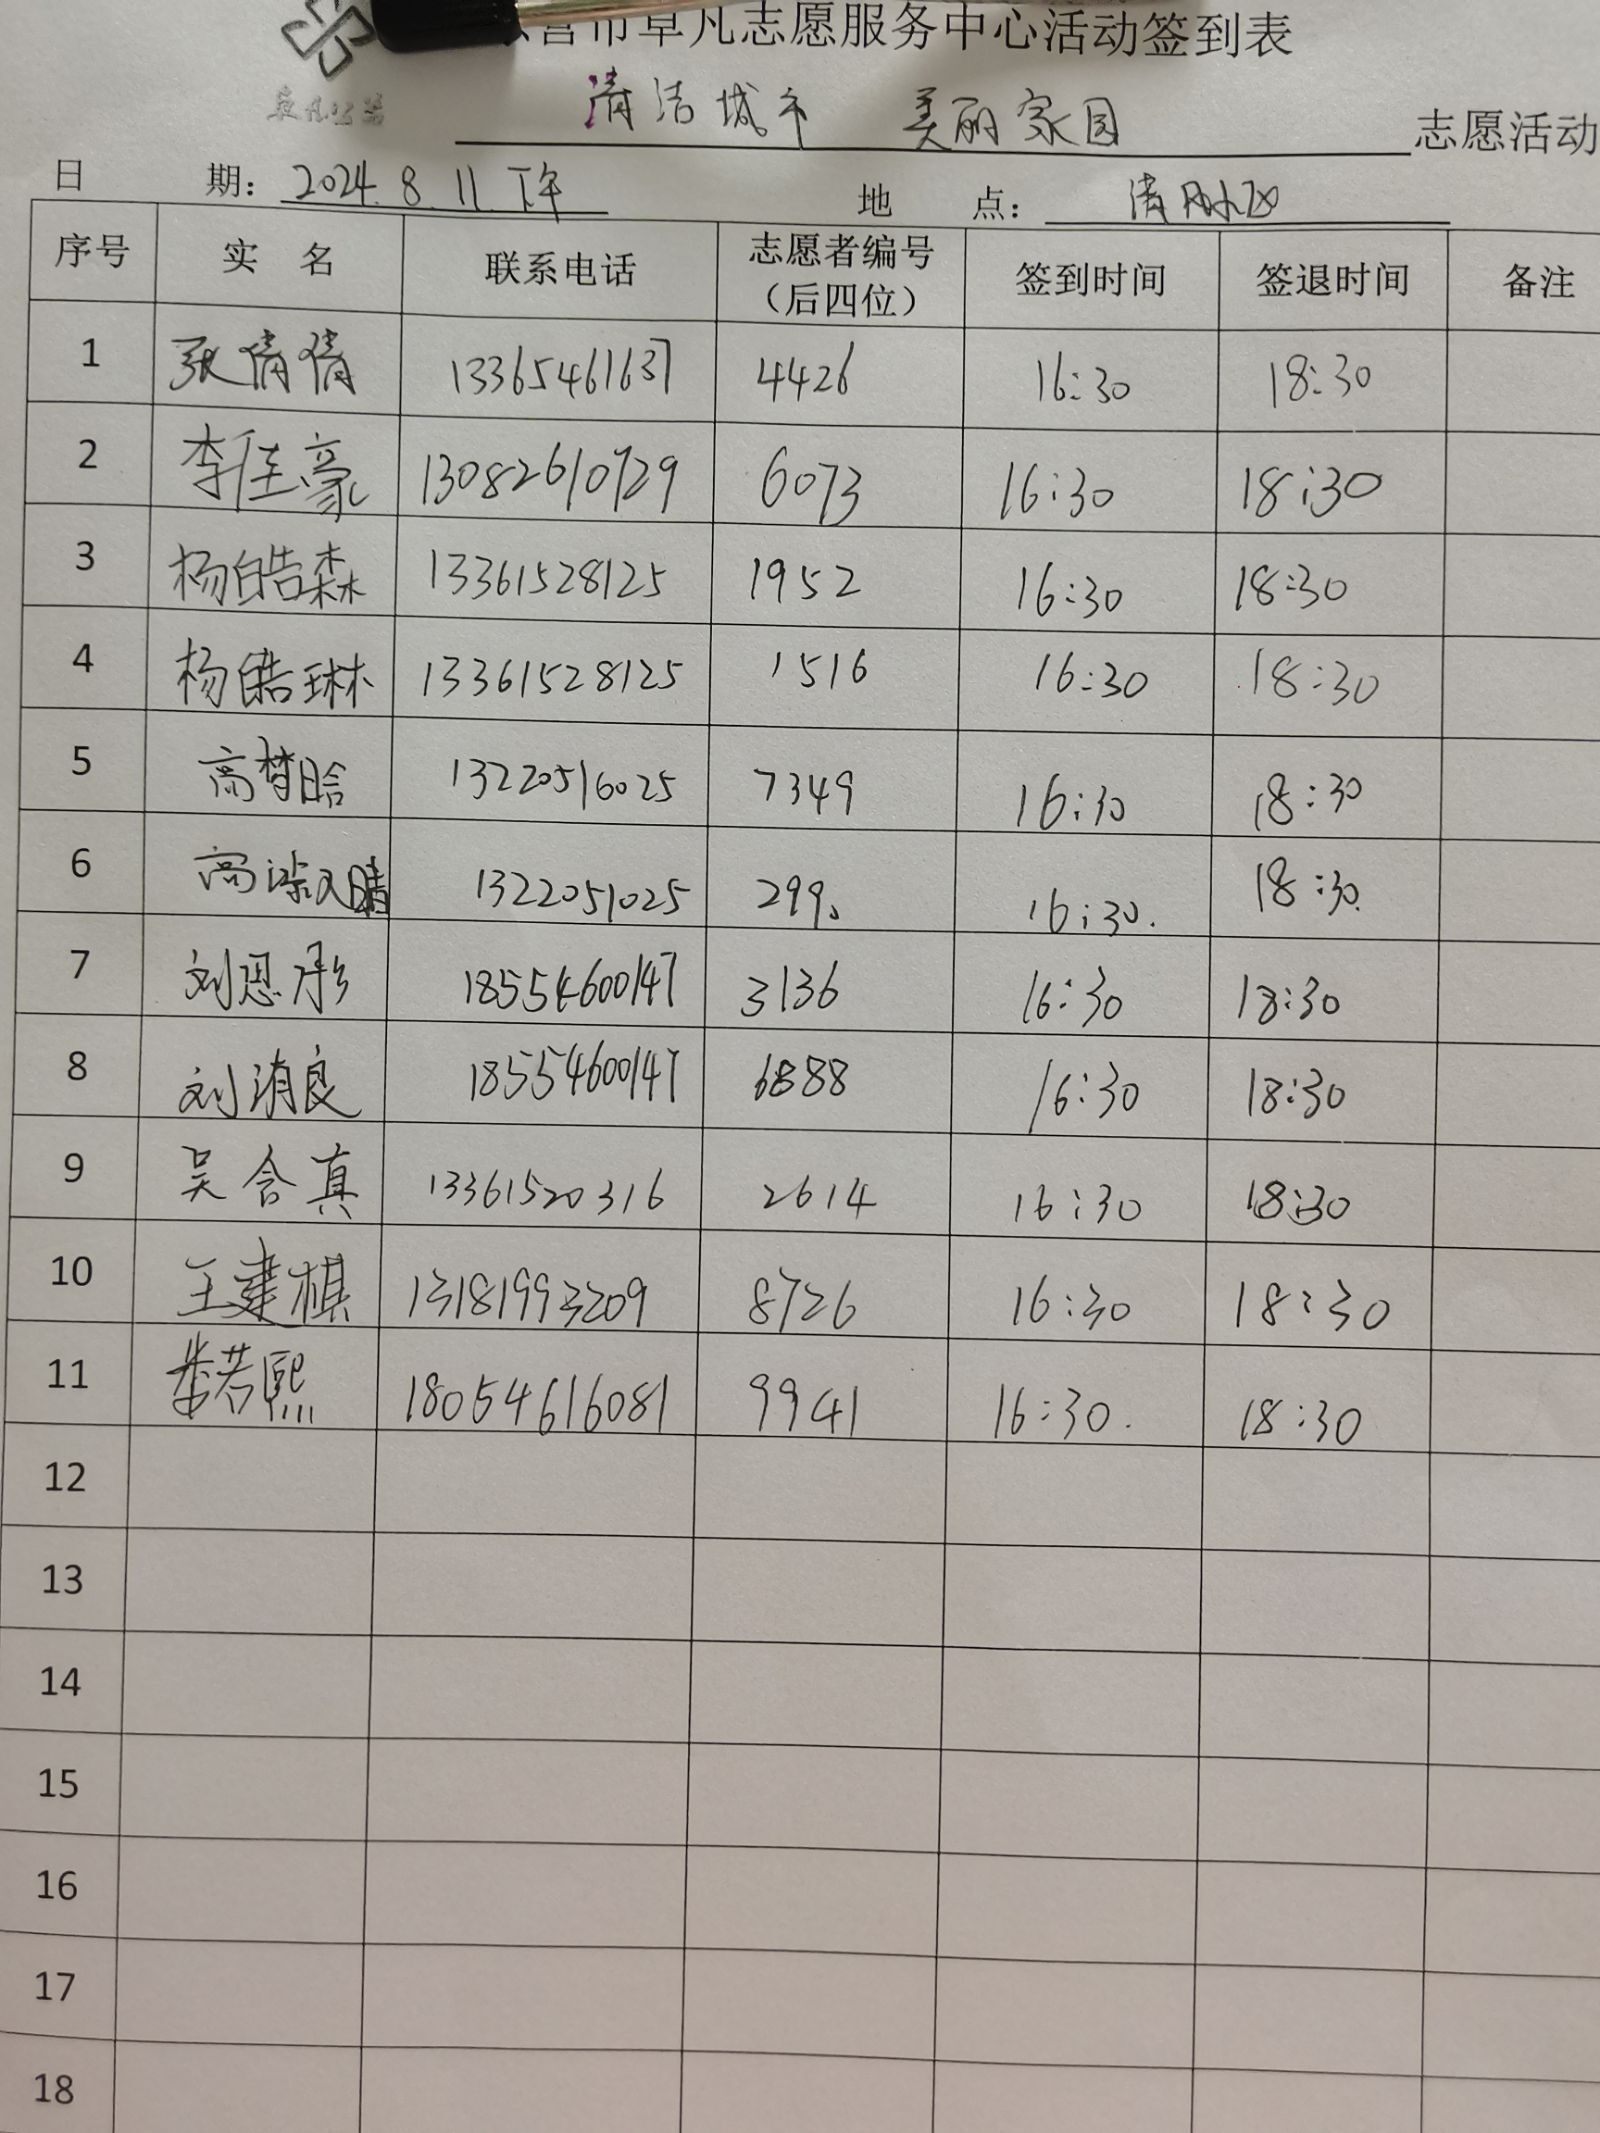 营市草凡志愿服务中心活动签到表
草凡公益
清洁城市 美丽家园 志愿活动
日 期: 2024.8.11.下午 地 点: 清风小区
序号 实 名 联系电话 志愿者编号(后四位) 签到时间 签退时间 备注
1 张倩倩 13365461637 4426 16:30 18:30
2 李佳豪 13082610729 6073 16:30 18:30
3 杨皓森 13361528125 1952 16:30 18:30
4 杨皓琳 13361528125 1516 16:30 18:30
5 高梦晗 13220516025 7349 16:30 18:30
6 高 1322051025 2990 16:30. 18:30.
7 刘恩彤 18554600147 3136 16:30 18:30
8 刘洧良 18554600147 6888 16:30 18:30
9 吴含真 13361520316 2614 16:30 18:30
10 王建棋 13181993209 8726 16:30 18:30
11 娄若熙 18054616081 9941 16:30. 18:30
12
13
14
15
16
17
18